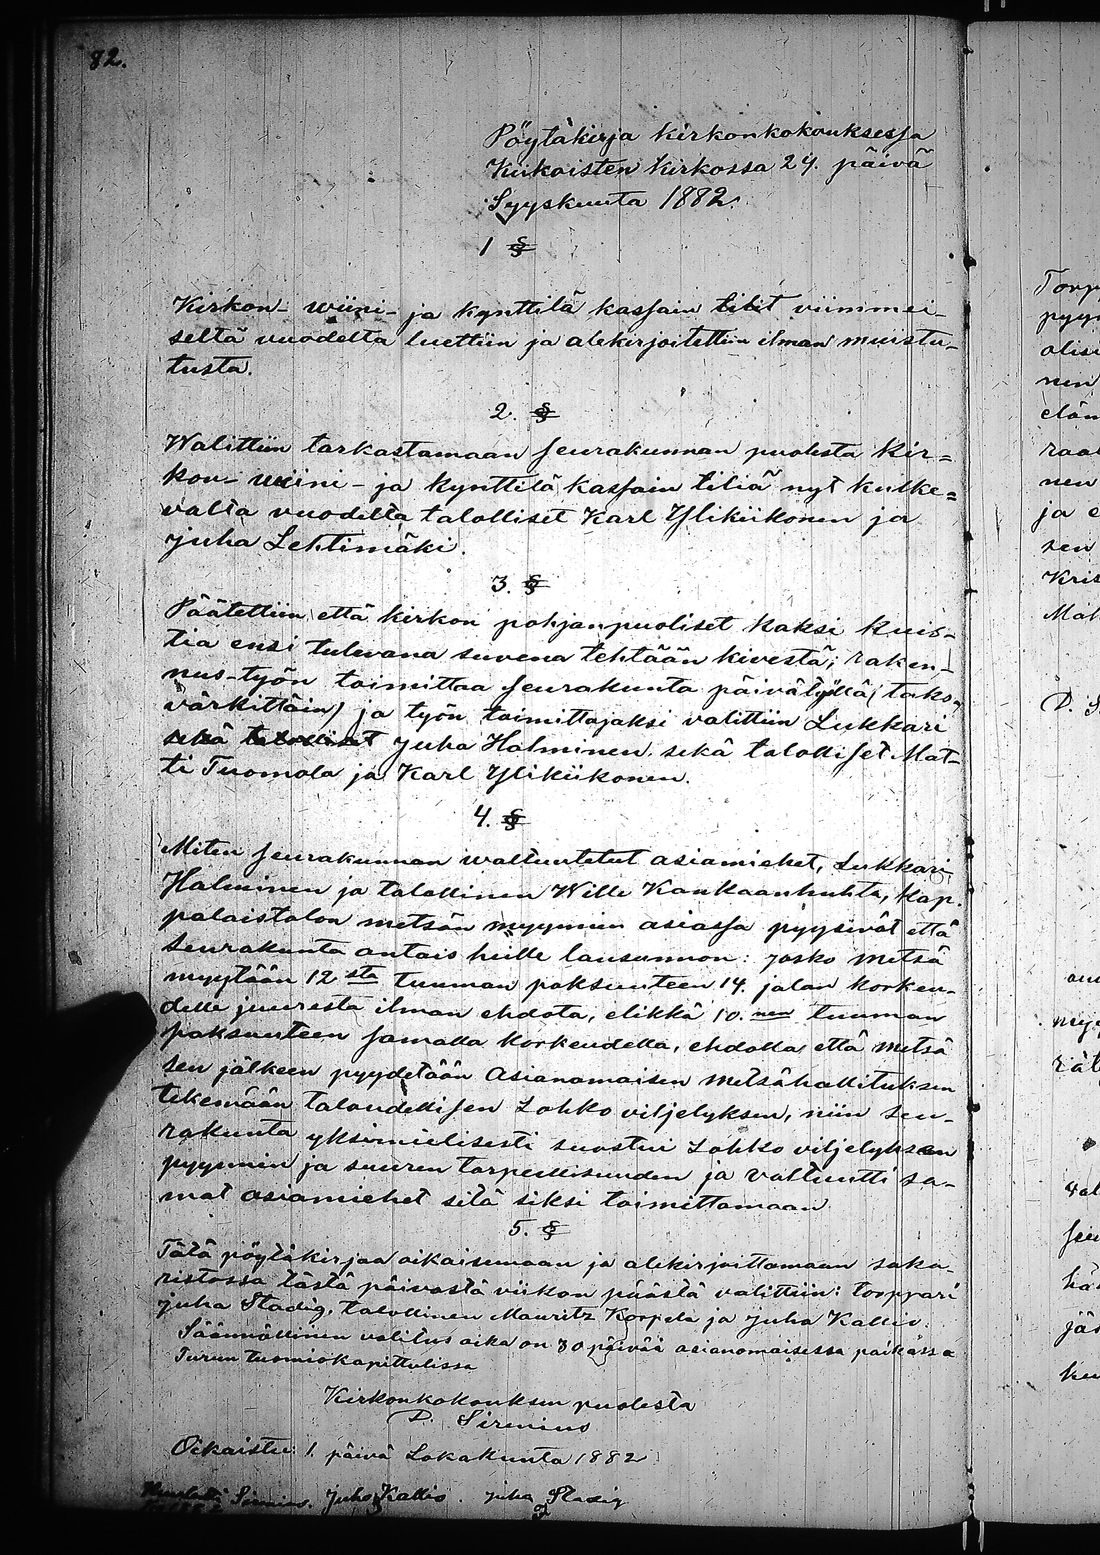 82.
Pöytäkirja kirkonkokouksessa
Kiikoisten kirkossa 24. päivä
Syyskuuta 1882.
1 §
Kirkon- wiini- ja kynttilä kassain tilit viimmei-
seltä vuodelta luettiin ja alekirjoitettiin ilman muistu-
tusta.
2. §
Walittiin tarkastamaan seurakunnan puolesta kir=
kon- wiini- ja kynttilä kassain tiliä nyt kulke=
valta vuodelta talolliset Karl Ylikiikonen ja
Juha Lehtimäki.
3. §
Päätettiin että kirkon pohjanpuoliset kaksi kuis-
tia ensi tulevana suvena tehtään kivestä; raken-
nus-työn toimittaa seurakunta päivätyöllä (takso-
värkittäin) ja työn toimittajaksi valittiin Lukkari
sekä talolliset Juha Halminen sekä talolliset Mat-
ti Tuomola ja Karl Ylikiikonen.
4. §
Miten seurakunnan waltuutetut asiamiehet, Lukkari
Halminen ja talollinen Wille Kankaanhuhta, Kap-
palaistalon metsän myynnin asiassa pyysivät että
Seurakunta antais heille lausunnon: josko metsä
myytään 12 sta tuuman paksuuteen 14. jalan korkeu-
delle juuresta ilman ehdota, elikkä 10. nen tuuman
paksuuteen samalla korkeudella, ehdolla että metsä
sen jälkeen pyydetään Asianomaisen metsähallituksen
tekemään taloudellisen Lohko viljelyksen, niin seu-
rakunta yksimielisesti suostui Lohko viljelyksen
pyynnin ja suuren tarpeellisuuden ja valtuutti sa-
mat asiamiehet sitä siksi toimittamaan
5. §
Tätä pöytäkirjaa oikaisemaan ja alekirjoittamaan saka-
ristossa tästä päivästä viikon päästä valittiin: torppari
Juha Stadig, talollinen Mauritz Korpela ja Juha Kallio.
Säännöllinen valitus aika on 30 päivää asianomaisessa paikassa
Turun tuomiokapittulissa
Kirkonkokouksen puolesta
D. Sirenius
Oikaistu 1. päivä Lokakuuta 1882
Sirenius. Juho Kallio. Juha Stadig
Torp
pyy
olisi
nen
eläm
raa
nen
ja e
sen
Kris
Mat
D. S
myy
rät
hä
jär
ku